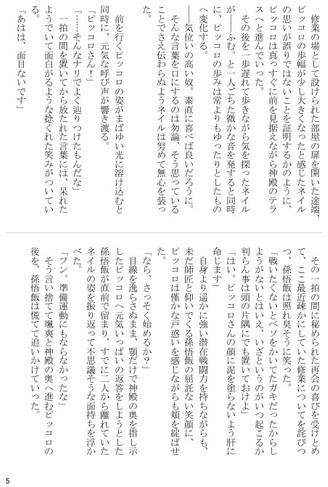 修業の場として設けられた部屋の扉を開いた途端、
ピッコロの歩幅が少し大きくなったと感じたネイル
の思いが誤りではないことを証明するかのように、
ピッコロは真っすぐに前を見据えながら神殿のテラ
スへと進んでいった。
その後を一歩遅れて歩きながら気を探ったネイル
が――ふむ、と一人ごちた微かな音を発すると同時
に、ピッコロの歩みは常よりもゆったりとしたもの
へ変化する。
――気位いの高い奴、素直に喜べば良いだろうに。
そんな言葉を口にするのは勿論、そう思っている
ことでさえ伝わらぬようネイルは努めて無心を装っ
た。
前を行くピッコロの姿がまばゆい光に溶け込むと
同時に、元気な呼び声が響き渡る。
「ピッコロさん！」
「……そんなナリでよく辿りつけたもんだな」
一拍の間を置いてから放たれた言葉には、呆れた
ようでいて面白がるような捻くれた笑みがついてい
る。
「あはは、面目ないです」
その一拍の間に秘められた再会の喜びを受けとめ
て、ここ最近疎かにしていた修業についてを詫びつ
つ、孫悟飯は照れ臭そうに笑った。
「戦いたくないとベソをかいてたガキだったからし
ようがないとはいえ、いざというのがいつ起こるか
判らん事は頭の片隅にでも置いておけよ」
「はい。ピッコロさんの顔に泥を塗らないよう肝に
命じます」
自身より遥かに強い潜在戦闘力を持ちながらも、
未だ師匠と仰いでくる孫悟飯の屈託ない笑顔に、
ピッコロは僅かな戸惑いを感じながらも頬を綻ばせ
た。
「なら、さっそく始めるか？」
目線を逸らさぬまま、顎だけで神殿の奥を指し示
したピッコロへ元気いっぱいの返答をしようとした
孫悟飯が直前で留まり、すでに二人から離れていた
ネイルの姿を振り返って不思議そうな面持ちを浮か
べた。
「フン。準備運動にもならなかったな」
そう言い捨てて颯爽と神殿の奥へ進むピッコロの
後を、孫悟飯は慌てて追いかけていった。
5